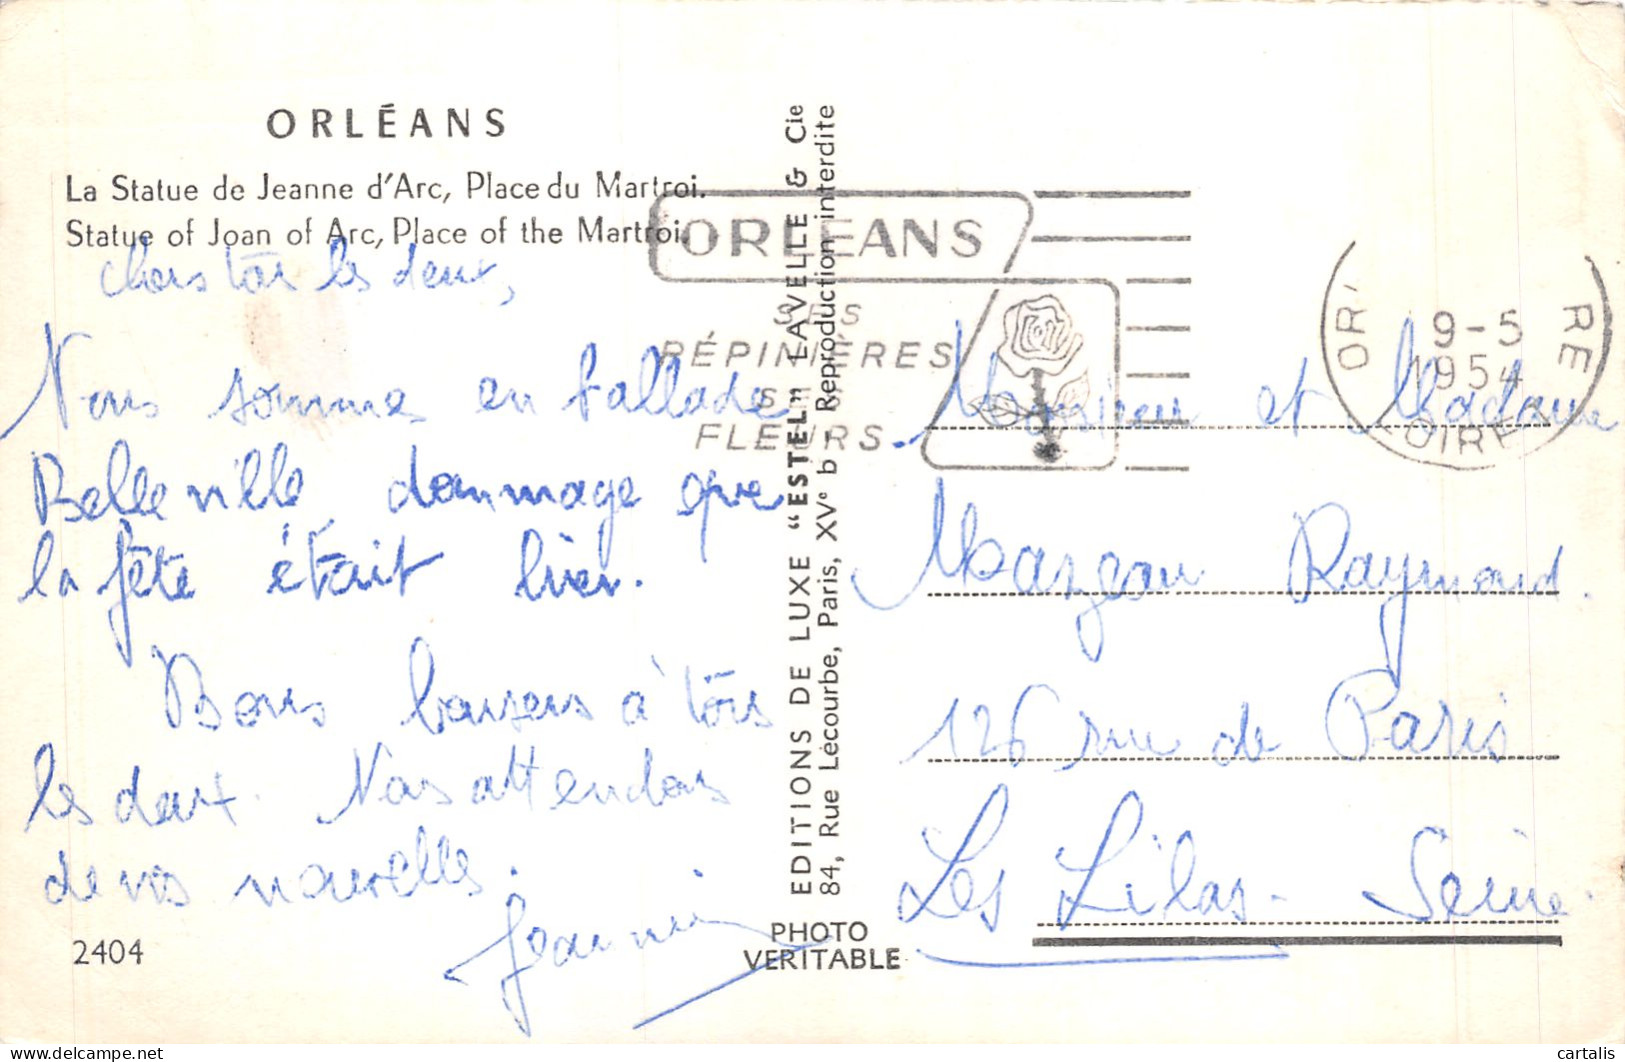 ORLÉANS
La Statue de Jeanne d'Arc, Place du Martroi.
Statue of Joan of Arc, Place of the Martroi.
les deux,
Nous sommes en ballade
Belleville dommage que
la fête était hier.
Bons baisers à tous
les deux. Nous attendons
de vos nouvelles.
Jeannine
2404
EDITIONS DE LUXE "ESTEL" LAVELLE & Cie
84, Rue Lécourbe, Paris, XVe b Reproduction interdite
PHOTO
VERITABLE
ORLEANS
SES
RÉPINIÈRES
SES
FLEURS
9-5
1954
LOIRET
Monsieur et Madame
Mazeau Raymond.
126 rue de Paris
Les Lilas - Seine.
cartalis